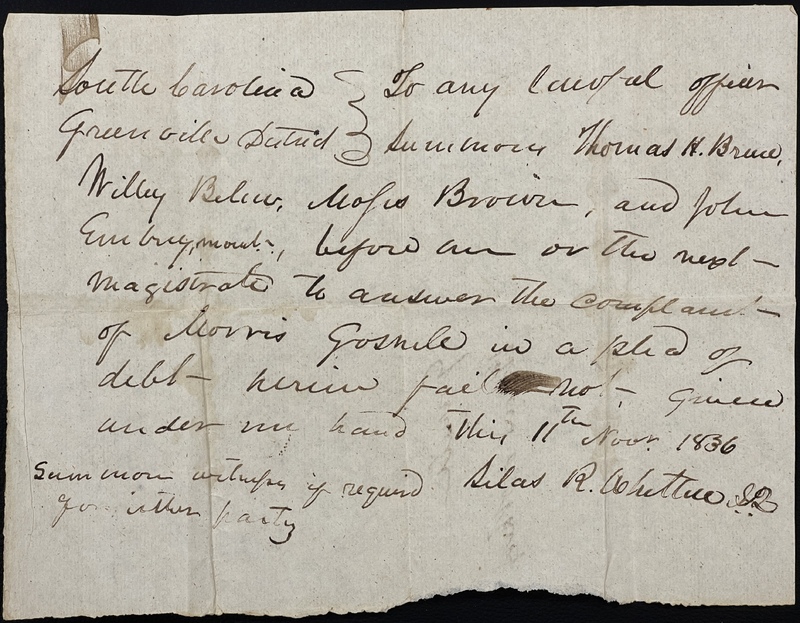 South Carolina } To any lawful officer
Greenville District } Summons Thomas H. Bruce,
Willey Belew, Moses Brown, and John
before me or the next
magistrate to answer the complaint
of Morris Gosnele in a plea of
debt herein fail not. Given
under my hand this 11th Novr. 1836
Summon witness if required Silas R. Whitten
for either party